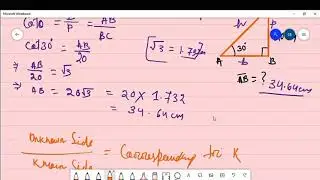 Microsoft Whiteboard
Cot θ = b/P = AB/BC
Cot 30° = AB/20
⇒ AB/20 = √3
⇒ AB = 20√3 = 20 × 1.732
= 34.64 cm
√3 = 1.732
h
P
30°
A
b
B
AB = ?
34.64 cm
Unknown Side / Known Side = Corresponding